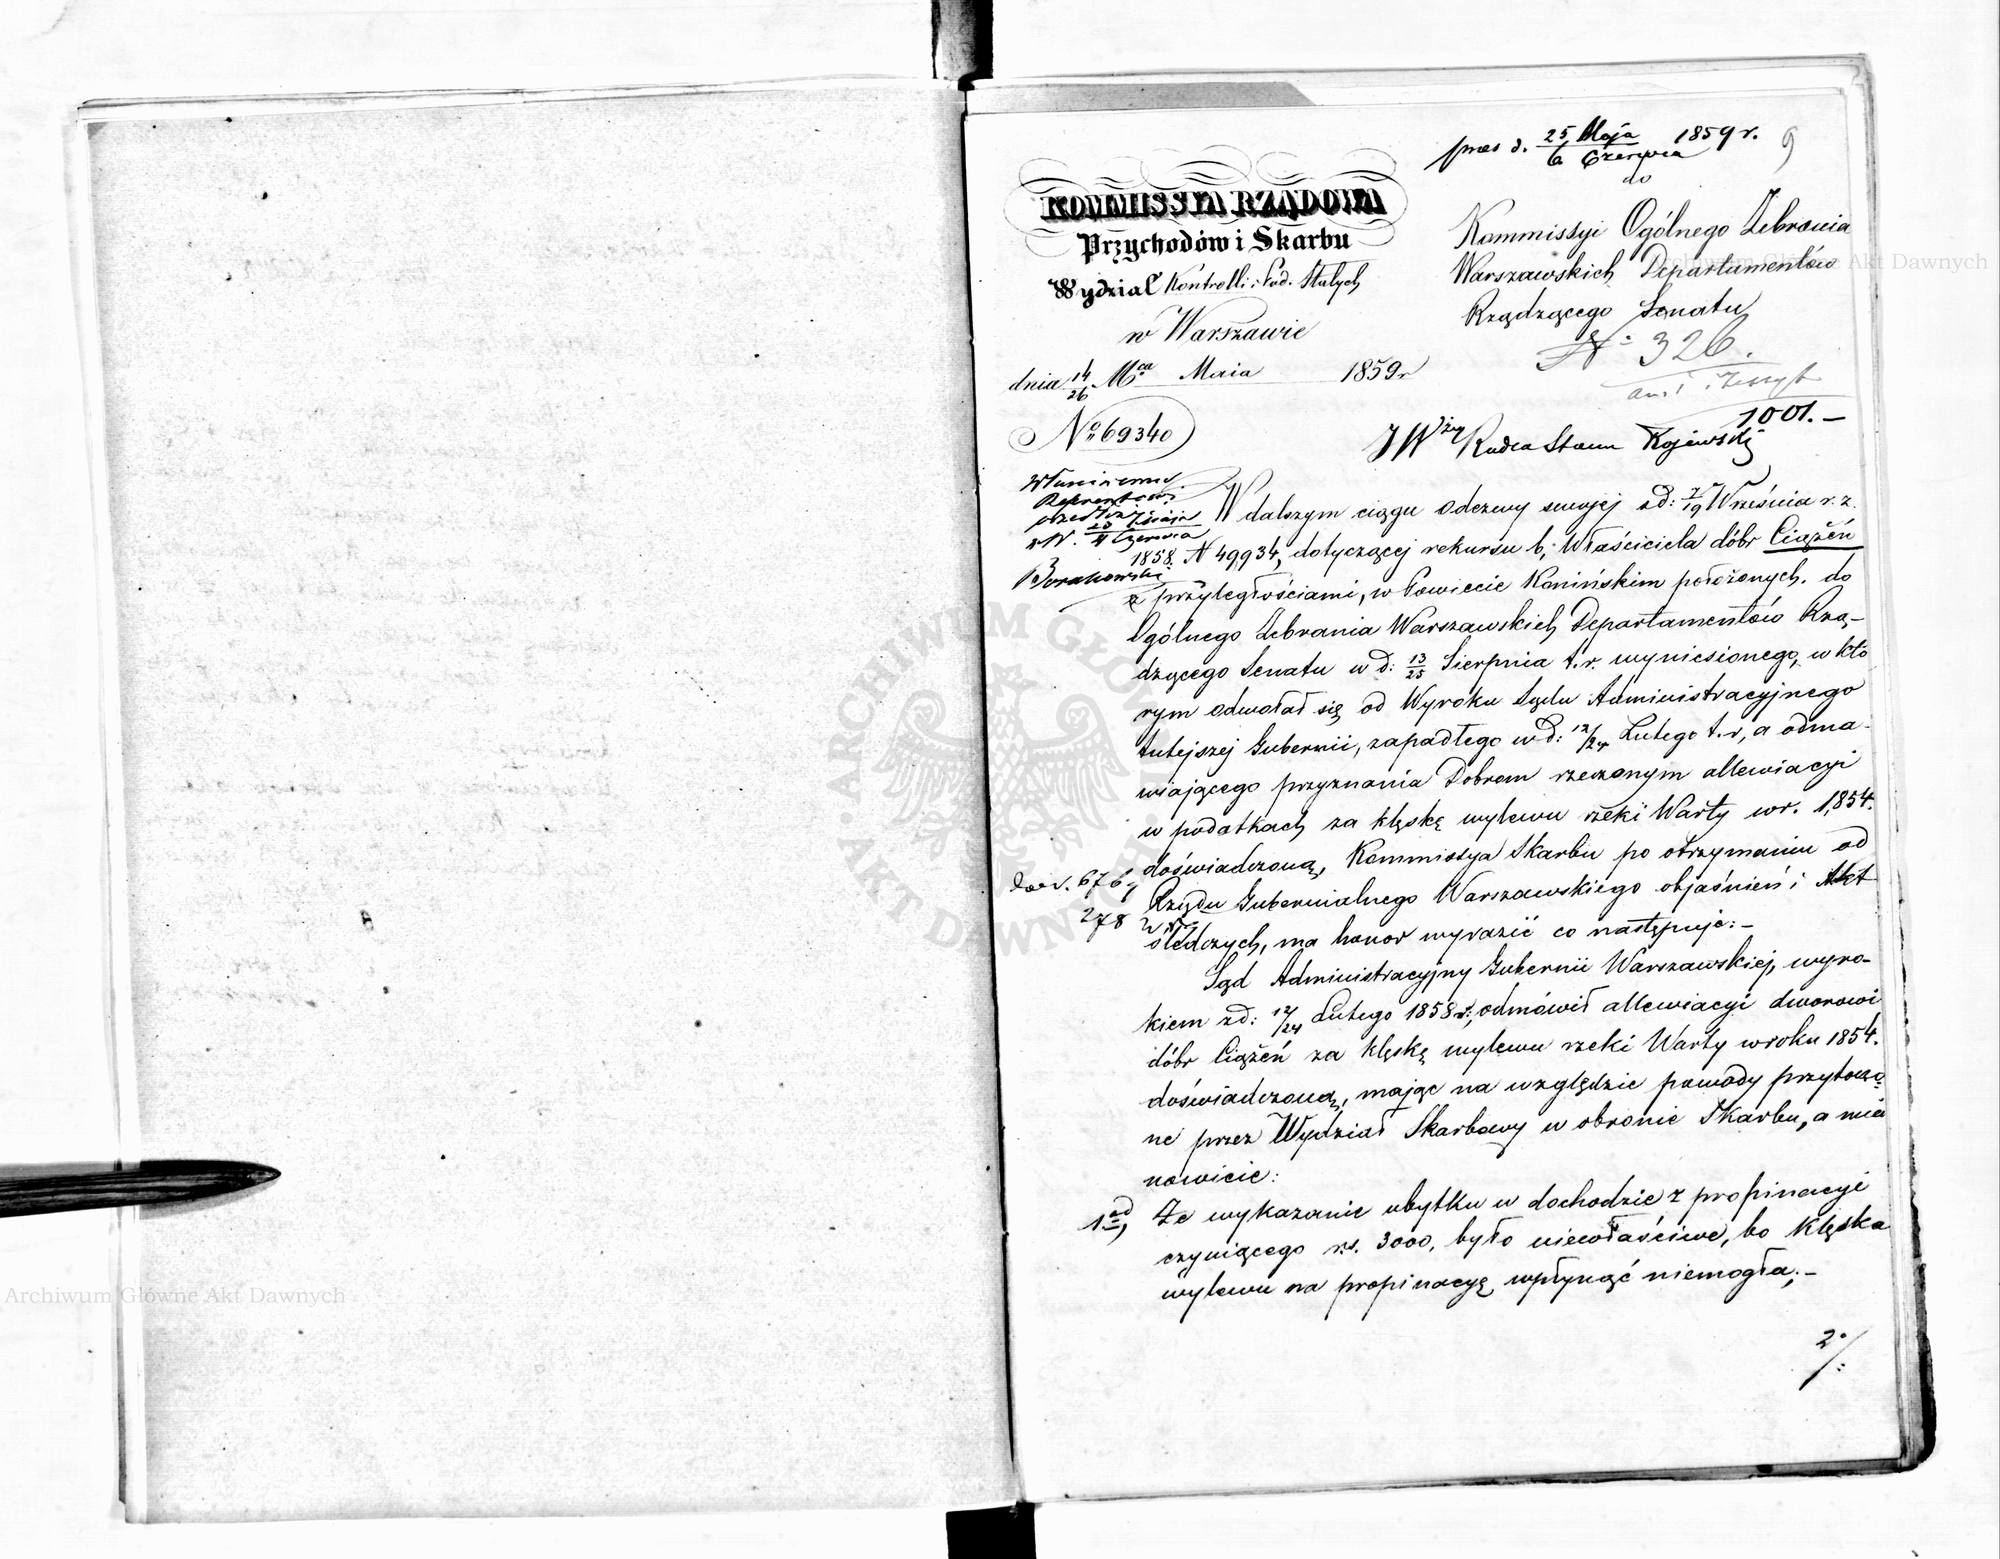 praes d. 25 Maja / 6 Czerwca 1859 r.
9
do
KOMMISSYA RZĄDOWA
Przychodów i Skarbu
Wydział Kontrolli i Pod. Stałych
w Warszawie
dnia 14/26 Mca Maia 1859 r
No 69340
Kommissyi Ogólnego Zebrania
Warszawskich Departamentów
Rządzącego Senatu
N 326.
1001.-
JW Radca Stanu
23 / 4 Czerwca
W dalszym ciągu odezwy swojej z d: 7/19 Września r. z.
1858. N 49,934, dotyczącej rekursu b; Właściciela dóbr Ciążeń
z przyległościami, w Powiecie Konińskim położonych, do
Ogólnego Zebrania Warszawskich Departamentów Rzą-
dzącego Senatu w d: 13/25 Sierpnia t. r. wyniesionego, w któ
rym odwołał się od Wyroku Sądu Administracyjnego
tutejszej Gubernii, zapadłego w d: 12/24 Lutego t. r, a odma-
wiającego przyznania Dobrom rzeczonym allewiacyi
w podatkach za klęskę wylewu rzeki Warty w r. 1,854.
doświadczoną, Kommissya Skarbu po otrzymaniu od
Rządu Gubernialnego Warszawskiego objaśnień i Akt
śledczych, ma honor wyrazić co następuje:-
676
278
Sąd Administracyjny Gubernii Warszawskiej, wyro-
kiem z d: 12/24 Lutego 1858 r:, odmówił allewiacyi dworowi
dóbr Ciążeń za klęskę wylewu rzeki Warty w roku 1854.
doświadczoną, mając na względzie powody przytoczo
ne przez Wydział Skarbowy w obronie Skarbu, a mia
nowicie:
1od, Że wykazanie ubytku w dochodzie z propinacyi
czyniącego rs. 3000, było niewłaściwe, bo klęska
wylewu na propinacyę wpłynąć niemogła;-
2./:
Archiwum Główne Akt Dawnych
ARCHIWUM GŁÓWNE AKT DAWNYCH
Archiwum Główne Akt Dawnych